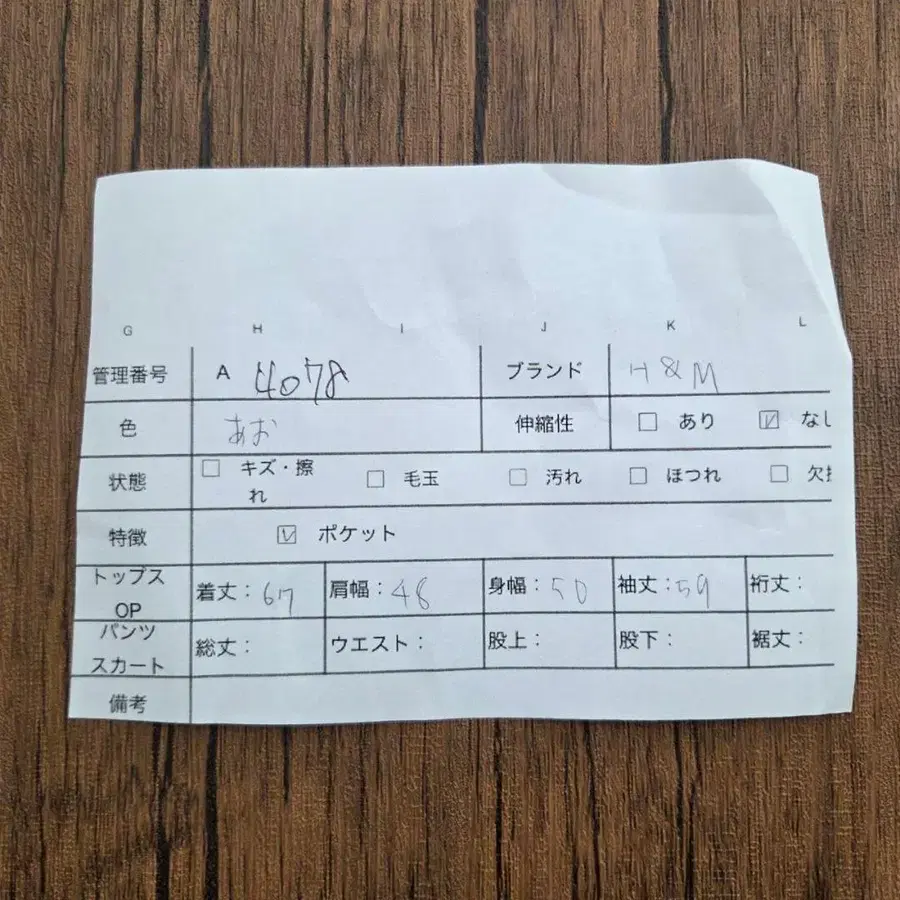 G H I J K L
管理番号 A 4078 ブランド H&M
色 あお 伸縮性 ☐ あり ☑ なし
状態 ☐ キズ・擦れ ☐ 毛玉 ☐ 汚れ ☐ ほつれ ☐ 欠
特徴 ☑ ポケット
トップス OP 着丈:67 肩幅:48 身幅:50 袖丈:59 裄丈:
パンツ スカート 総丈: ウエスト: 股上: 股下: 裾丈:
備考